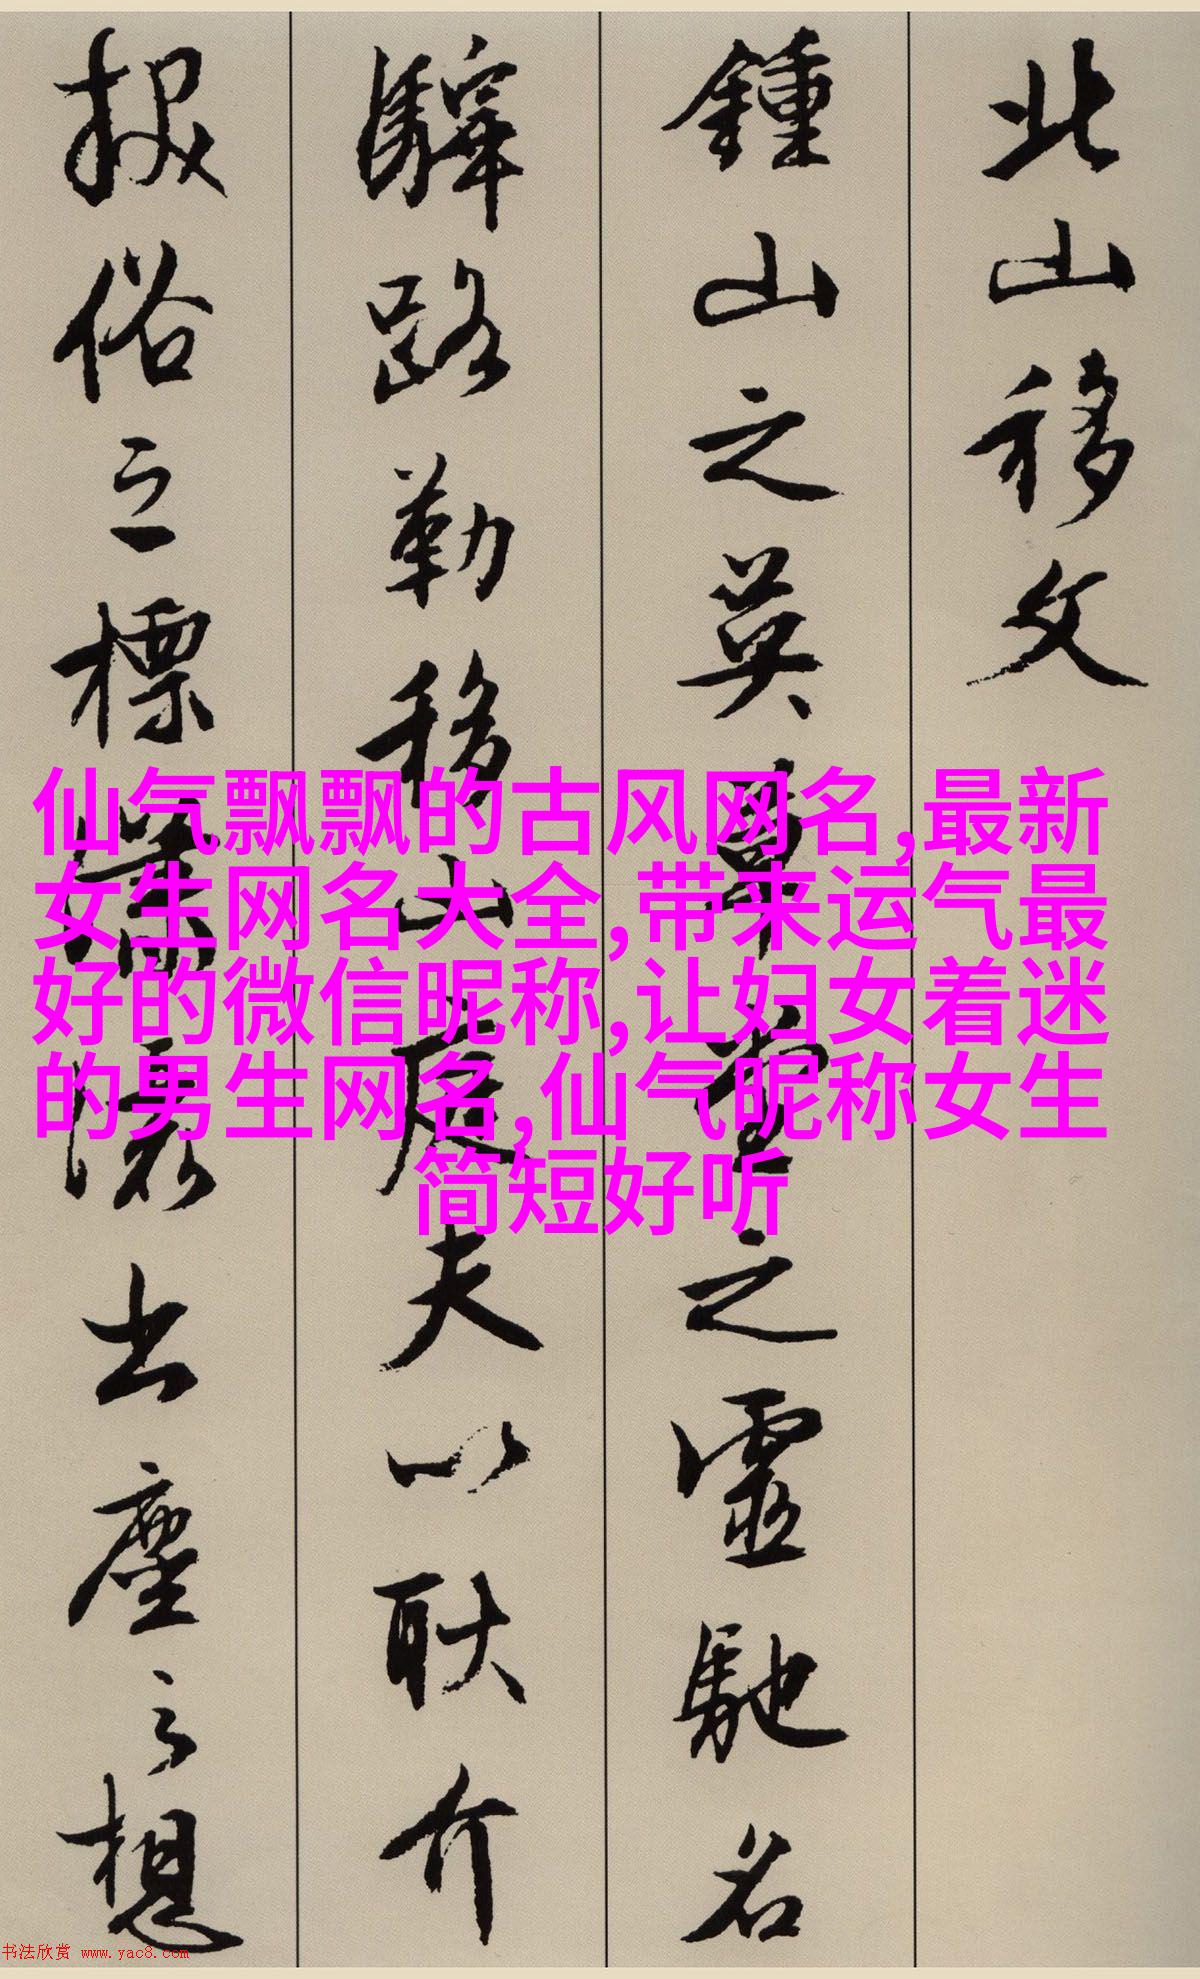 北山移文
鍾山之英草堂之靈馳名
驛路勒移山庭夫以耿介
拔俗之標瀟灑出塵之想
仙气飘飘的古风网名,最新
女生网名大全,带来运气最
好的微信昵称,让妇女着迷
的男生网名,仙气昵称女生
简短好听
书法欣赏 www.yac8.com